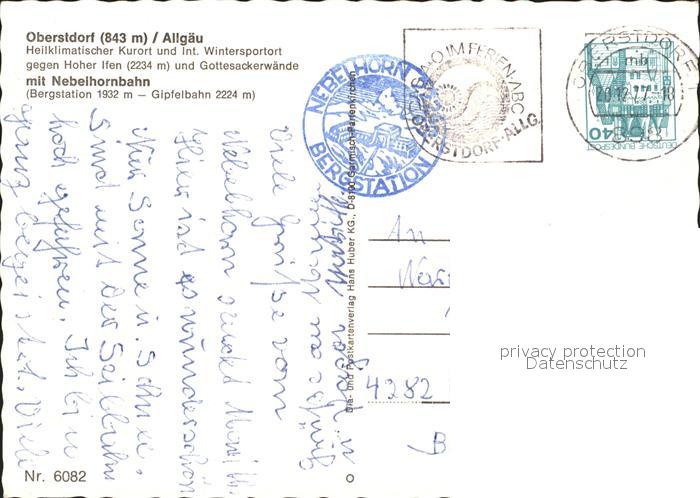 Oberstdorf (843 m) / Allgäu
Heilklimatischer Kurort und Int. Wintersportort
gegen Hoher Ifen (2234 m) und Gottesackerwände
mit Nebelhornbahn
(Bergstation 1932 m — Gipfelbahn 2224 m)
NEBELHORN
BERGSTATION
A-O IM FERIEN-ABC
OBERSTDORF-ALLG.
OBERSTDORF 1
mb
20.12.77-18
40
DEUTSCHE BUNDESPOST
Viele Grüße vom
Nebelhorn sendet
Hier ist es wunderschön
Nur Sonne u. Schnee.
Sind mit der Seilbahn
hoch gefahren. Ich bin
ganz begeistert. Viele
Dia- und Postkartenverlag Hans Huber KG., D-8100 Garmisch-Partenkirchen
An
4282
B
privacy protection
Datenschutz
Nr. 6082